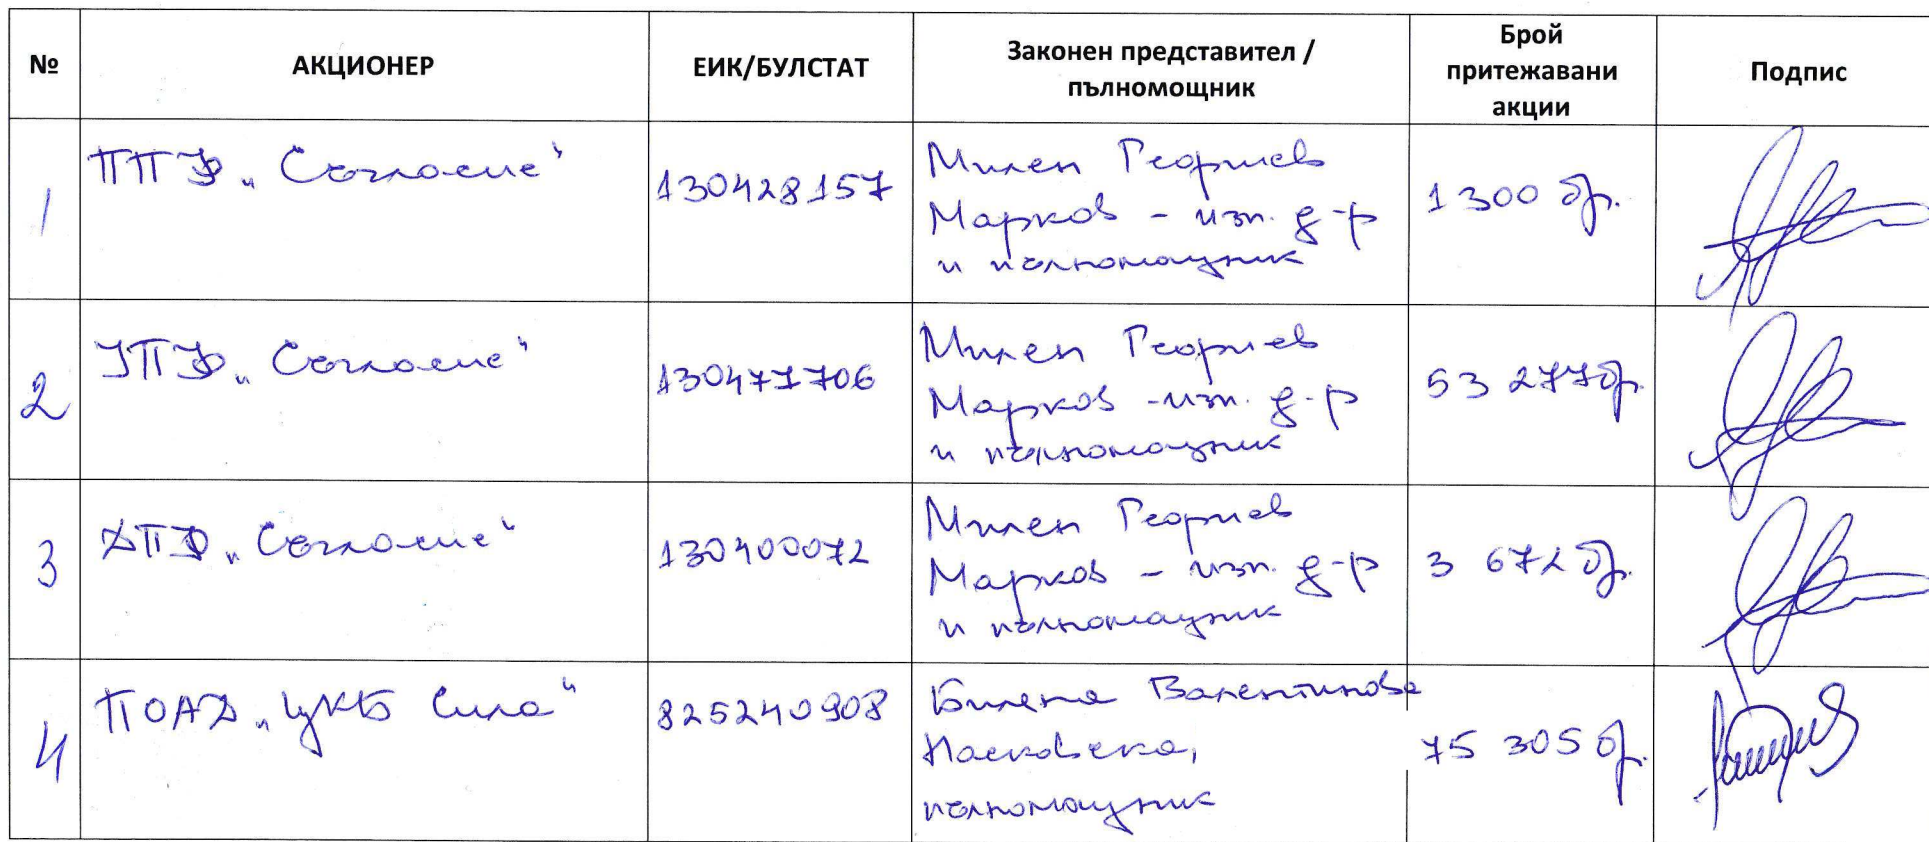 № АКЦИОНЕР ЕИК/БУЛСТАТ Законен представител / пълномощник Брой притежавани акции Подпис
1 ППФ „Съгласие“ 130428157 Милен Георгиев 1 300 бр.
Марков - изп. д-р
и пълномощник
2 УПФ „Съгласие“ 130477706 Милен Георгиев 53 277 бр.
Марков - изп. д-р
и пълномощник
3 ДПФ „Съгласие“ 130400072 Милен Георгиев 3 672 бр.
Марков - изп. д-р
и пълномощник
4 ПОАД „ЦКБ Сила“ 825240908 Билена Валентинова 75 305 бр.
пълномощник